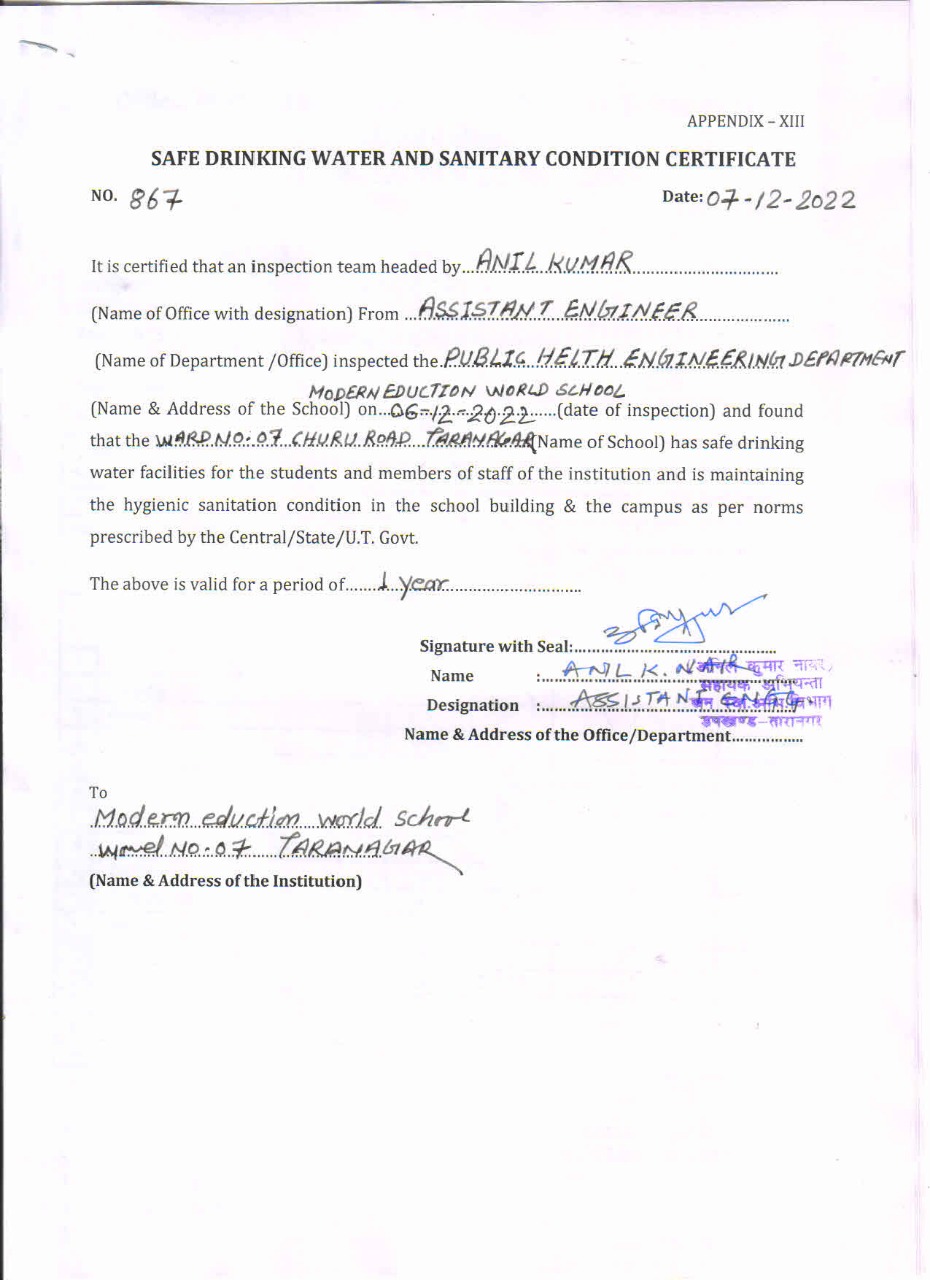 APPENDIX – XIII
SAFE DRINKING WATER AND SANITARY CONDITION CERTIFICATE
NO. 867 Date: 07-12-2022
It is certified that an inspection team headed by...ANIL KUMAR..............................
(Name of Office with designation) From ...ASSISTANT ENGINEER....................
(Name of Department /Office) inspected the PUBLIC HELTH ENGINEERING DEPARTMENT
MODERN EDUCTION WORLD SCHOOL
(Name & Address of the School) on...06-12-2022......(date of inspection) and found
that the WARD NO-07 CHURU ROAD TARANAGAR (Name of School) has safe drinking
water facilities for the students and members of staff of the institution and is maintaining
the hygienic sanitation condition in the school building & the campus as per norms
prescribed by the Central/State/U.T. Govt.
The above is valid for a period of.......1 year............................
Signature with Seal:..................................................
Name :.....ANIL K. NAIR
कुमार
Designation :......ASSISTANT ENGG.
सहायक अभियन्ता
उपखण्ड-तारानगर
Name & Address of the Office/Department.................
To
Modern eduction world school
NO-07 TARANAGAR
(Name & Address of the Institution)